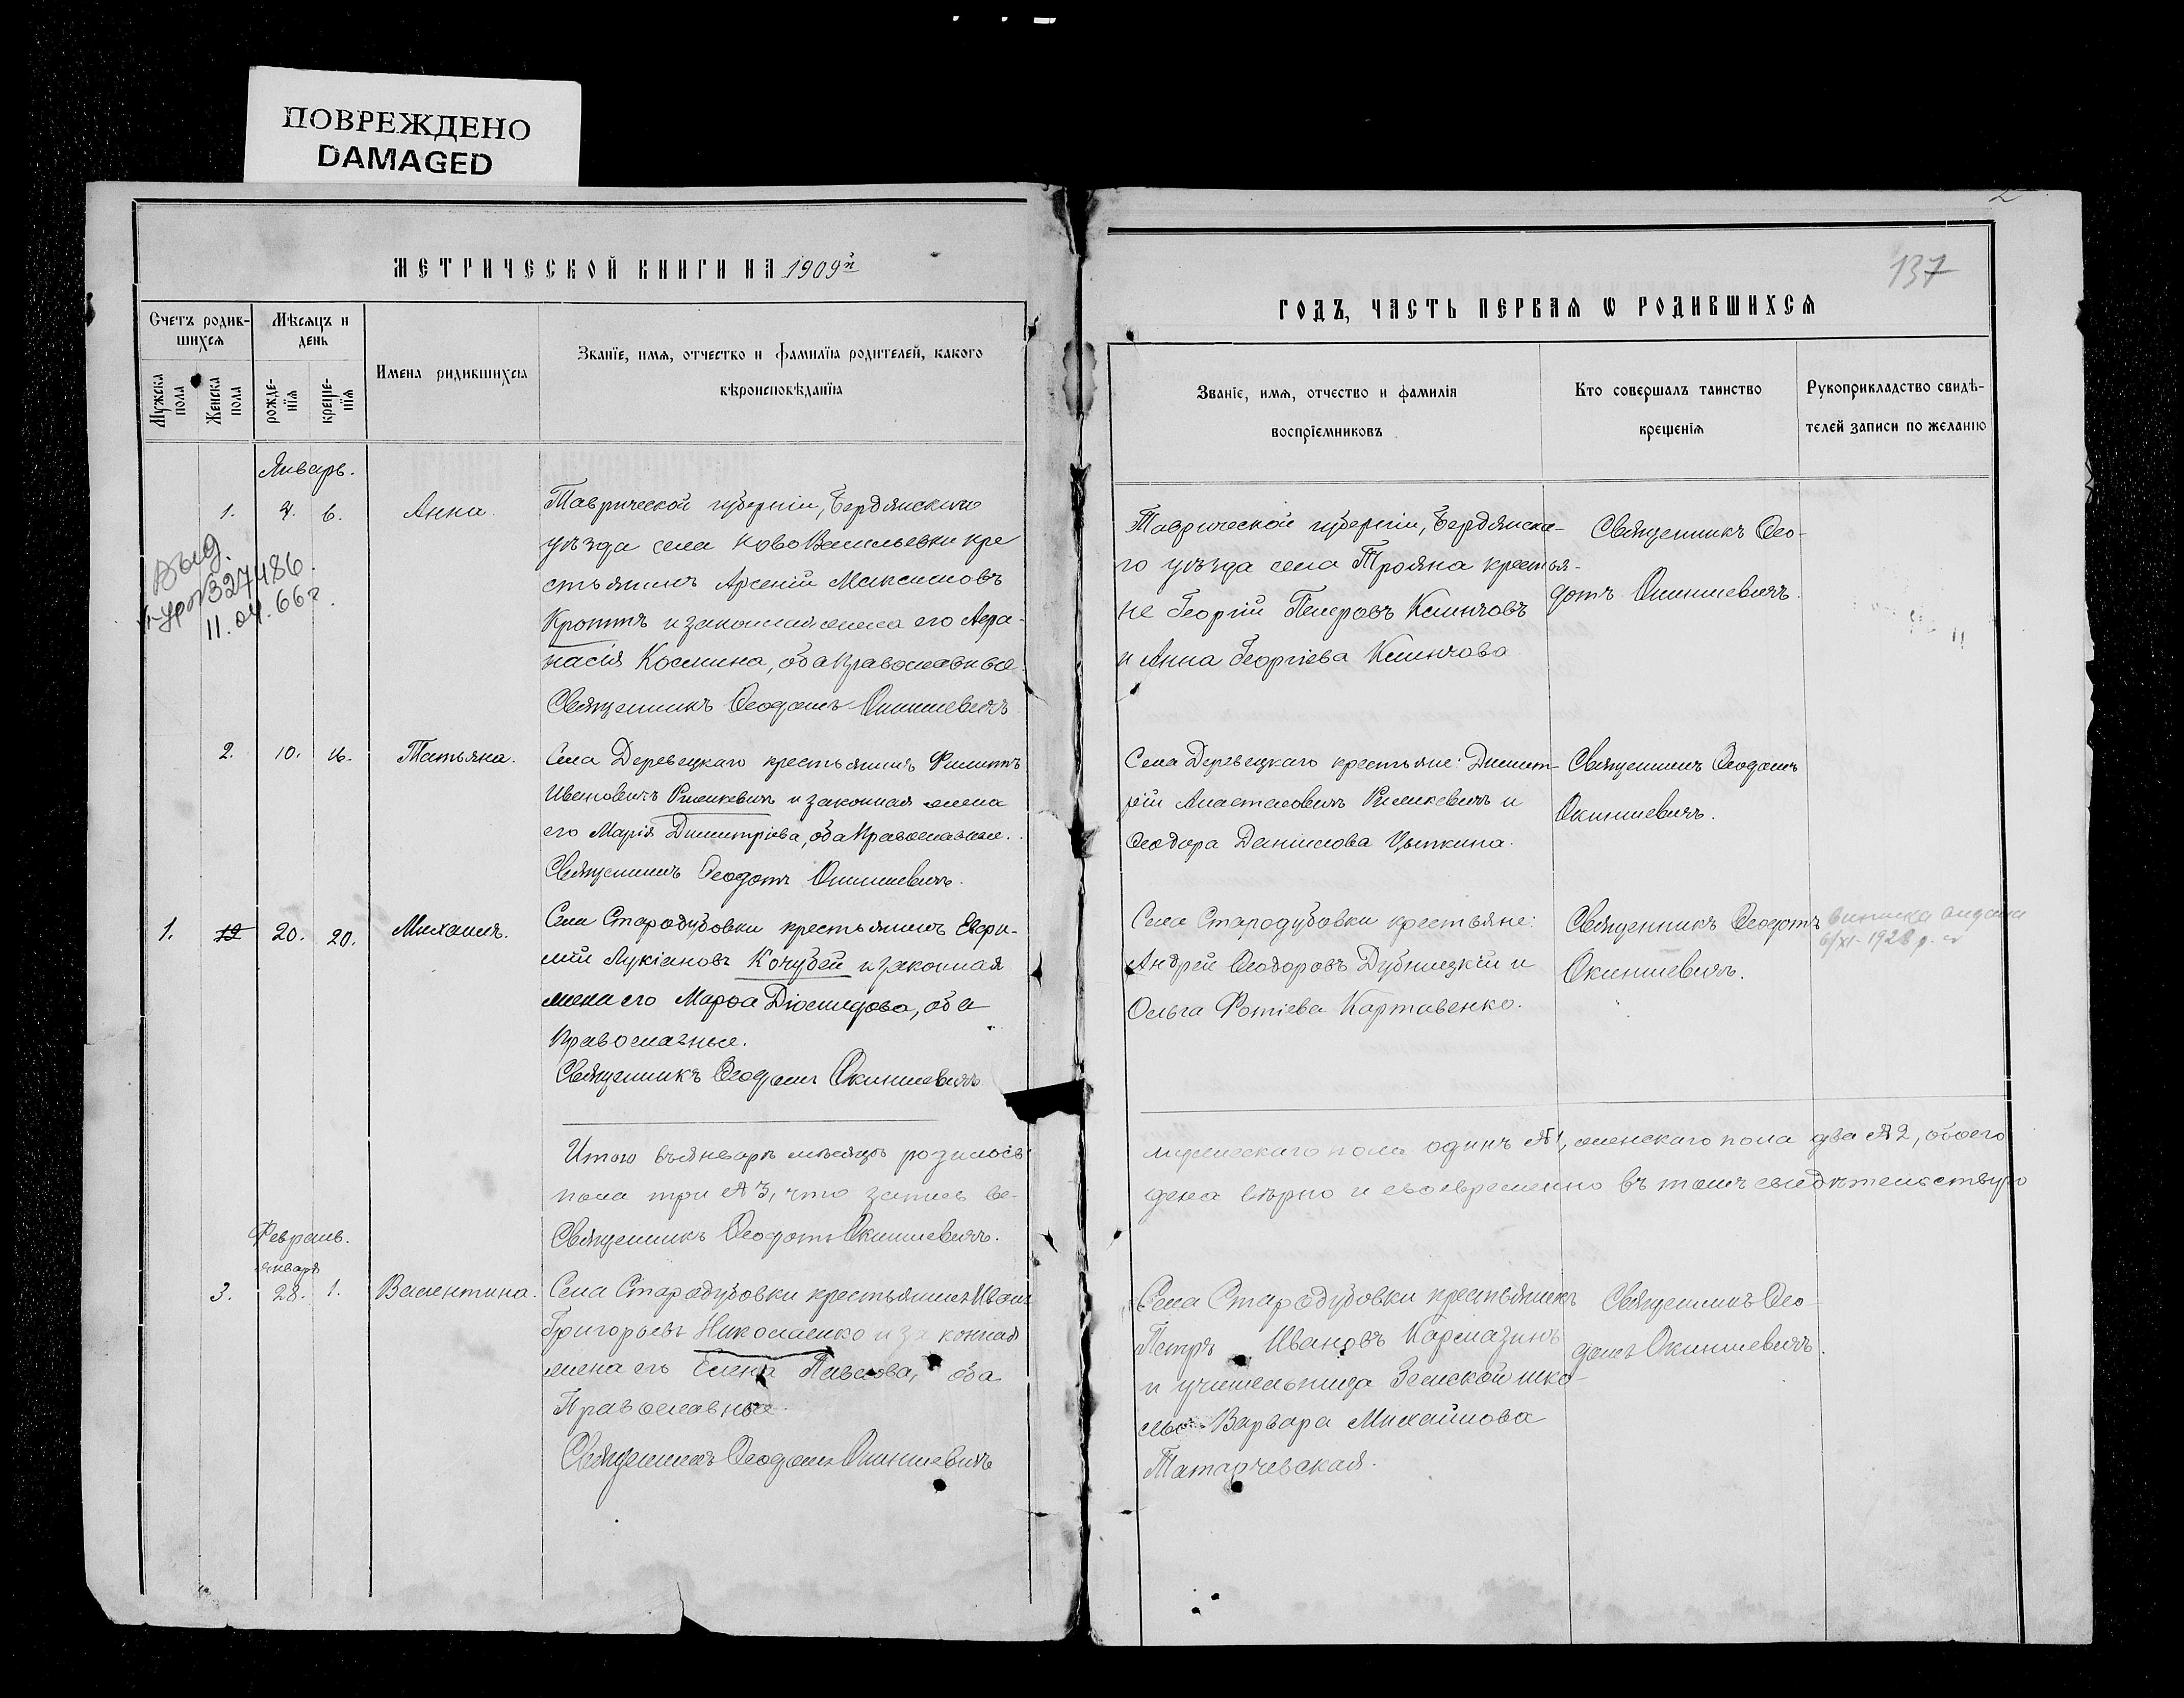 ПОВРЕЖДЕНО
DAMAGED
МЕТРИЧЕСКОЙ КНИГИ НА 1909й
Счетъ родив-
шихся
Мѣсяцъ и
день
Имена родившихся
Званїе, имя, отчество и фамилїа родителей, какого
вѣроисповѣданїа
Мужска
пола
Женска
пола
рожде-
нїя
креще-
нїя
Январь.
1. 4. 6. Анна.
Таврической губерніи, Бердянскаго
уѣзда села НовоВасильевки кре
стьянинъ Арсеній Максимовъ
Кроттъ и законная жена его Аѳа-
насія Космина, оба православные.
Священникъ Ѳеодотъ Окишевичъ
Выд.
327486.
11.04.66г.
2. 10. 16. Татьяна.
Села Деревецкаго крестьянинъ Филиппъ
Ивановичъ и законная жена
его Марія Димитріева, оба Православные.
Священникъ Ѳеодотъ Окишевичъ.
1. 12 20. 20. Михаилъ.
Села Стародубовки крестьянинъ Евфи-
мій Лукіановъ Кочубей и законная
жена его Марѳа Діомидова, оба
Православные.
Священникъ Ѳеодотъ Окишевичъ
Итого въ январѣ мѣсяцѣ родилось
пола три № 3, что запись ве-
Священникъ Ѳеодотъ Окишевичъ.
Февраль.
января
3. 28. 1. Валентина.
Села Стародубовки крестьянинъ Иванъ
Григорьевъ Николаенко и законная
жена его Елена Павлова, оба
Православные.
Священникъ Ѳеодотъ Окишевичъ
137
ГОДЪ, ЧАСТЬ ПЕРВАЯ Ѡ РОДИВШИХСЯ
Званїе, имя, отчество и фамилїя
воспрїемниковъ
Кто совершалъ таинство
крещенїя
Рукоприкладство свидѣ-
телей записи по желанію
Таврической губерніи, Бердянска-
го уѣзда села Трояна крестья-
не Георгій Петровъ Климчовъ
и Анна Георгіева Климчова
Священникъ Ѳео-
дотъ Окишевичъ.
Села Деревецкаго крестьяне: Димит-
рій Анастасовичъ и
Ѳеодора Данилова Цыпкина.
Священникъ Ѳеодотъ
Окишевичъ.
Села Стародубовки крестьяне:
Андрей Ѳеодоровъ Дубницкій и
Ольга Фотіева Картавенко.
Священникъ Ѳеодотъ
Окишевичъ.
виписка видана
6/XI-1928 р.
мужескаго пола одинъ №1, женскаго пола два №2, обоего
дена вѣрно и своевременно въ томъ свидѣтельствую
Села Стародубовки крестьянинъ
Петръ Ивановъ Кармазинъ
и учительница Земской шко-
лы Варвара Михайлова
Татарчевская.
Священникъ Ѳео-
дотъ Окишевичъ.